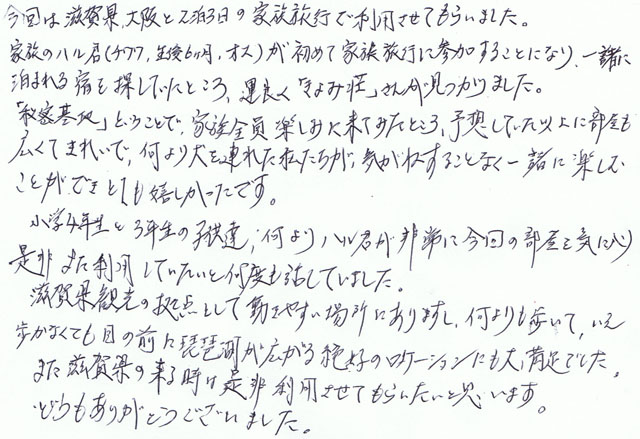 今回は滋賀県、大阪と2泊3日の家族旅行で利用させてもらいました。
家族のハル君(チワワ、生後6ヶ月、オス)が初めて家族旅行に参加することになり、一緒に
泊まれる宿を探していたところ、運良く「きよみ荘」さんが見つかりました。
「秘密基地」ということで、家族全員楽しみに来てみたところ、予想していた以上に部屋も
広くてきれいで、何より犬を連れた私たちが、気がねすることなく一緒に楽しむ
ことができとても嬉しかったです。
小学4年生と3年生の子供達、何よりハル君が非常に今回の部屋を気に入り
是非また利用していたいと何度も話していました。
滋賀県観光の拠点として動きやすい場所にありますし、何よりも歩いて、いえ
歩かなくても目の前に琵琶湖が広がる絶好のロケーションにも大満足でした。
また滋賀県の来る時は是非利用させてもらいたいと思います。
どうもありがとうございました。